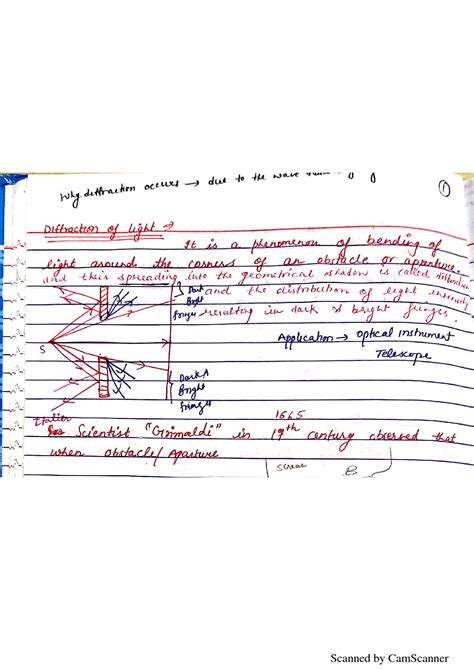 Why diffraction occurs → due to the wave
①
Diffraction of light →
It is a phenomenon of bending of
light around the corners of an obstacle or aperture.
and their spreading into the geometrical shadow is called diffraction
Dark and the distribution of light intensity
Bright
fringes resulting in dark & bright fringes
S
Application → optical instrument
Telescope
Dark &
Bright
fringes
Italian 1665
Scientist "Grimaldi" in 19th century observed that
when obstacle/ Aparture
screen
B
Scanned by CamScanner